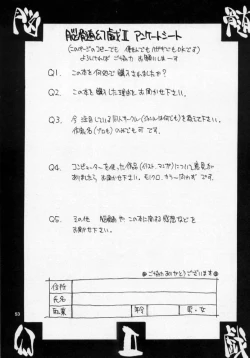 脳
髄
脳髄幻戯Ⅱ アンケートシート
(このページのコピーでも 便せんでも ハガキでもOKです)
よろしければ ご協力 お願いしまーす
Q1. この本を何処で購入されましたか?
Q2. この本を購入した理由をお聞かせ下さい。
Q3. 今注目している同人サークル
を教えて下さい。
作家名
のみでも可です。
Q4. コンピューターを使った作品(イラスト、マンガ)について意見が
ありましたら お聞かせ下さい。モノクロ、カラー問わずです。
Q5. その他 脳髄や この本に関する感想などを
お聞かせ下さい。
◎ご協力ありがとうございます◎
住所
氏名
職業 年令 男・女
幻
Ⅱ
戯